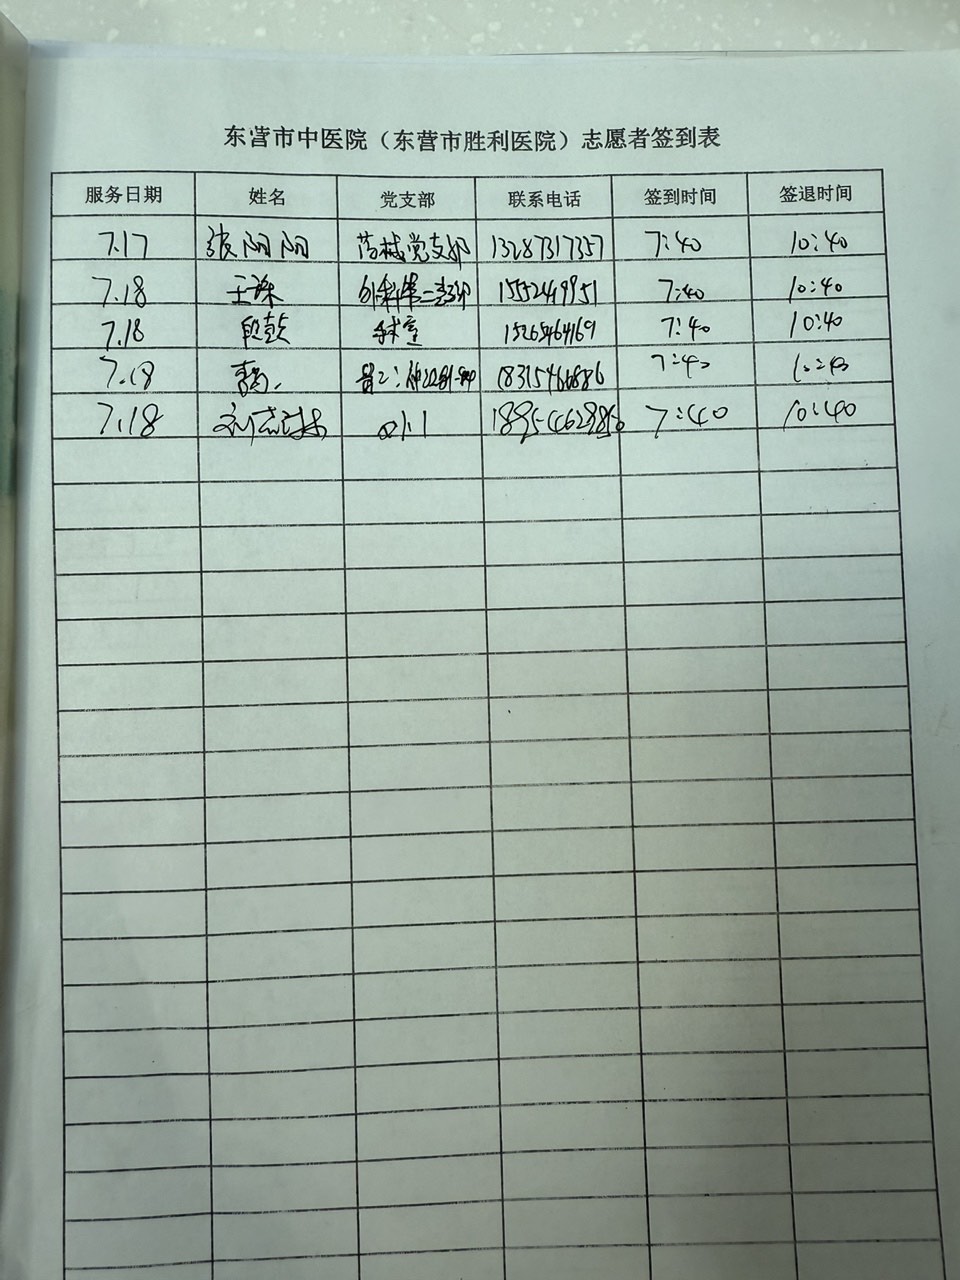 东营市中医院（东营市胜利医院）志愿者签到表
服务日期 姓名 党支部 联系电话 签到时间 签退时间
7.17 张阳阳 药械党支部 13287317357 7:40 10:40
7.18 王 外科第二支部 15552449951 7:40 10:40
7.18 段 手术室 15265464169 7:40 10:40
7.18 18315466886 7:40 10:40
7.18 刘 7:40 10:40